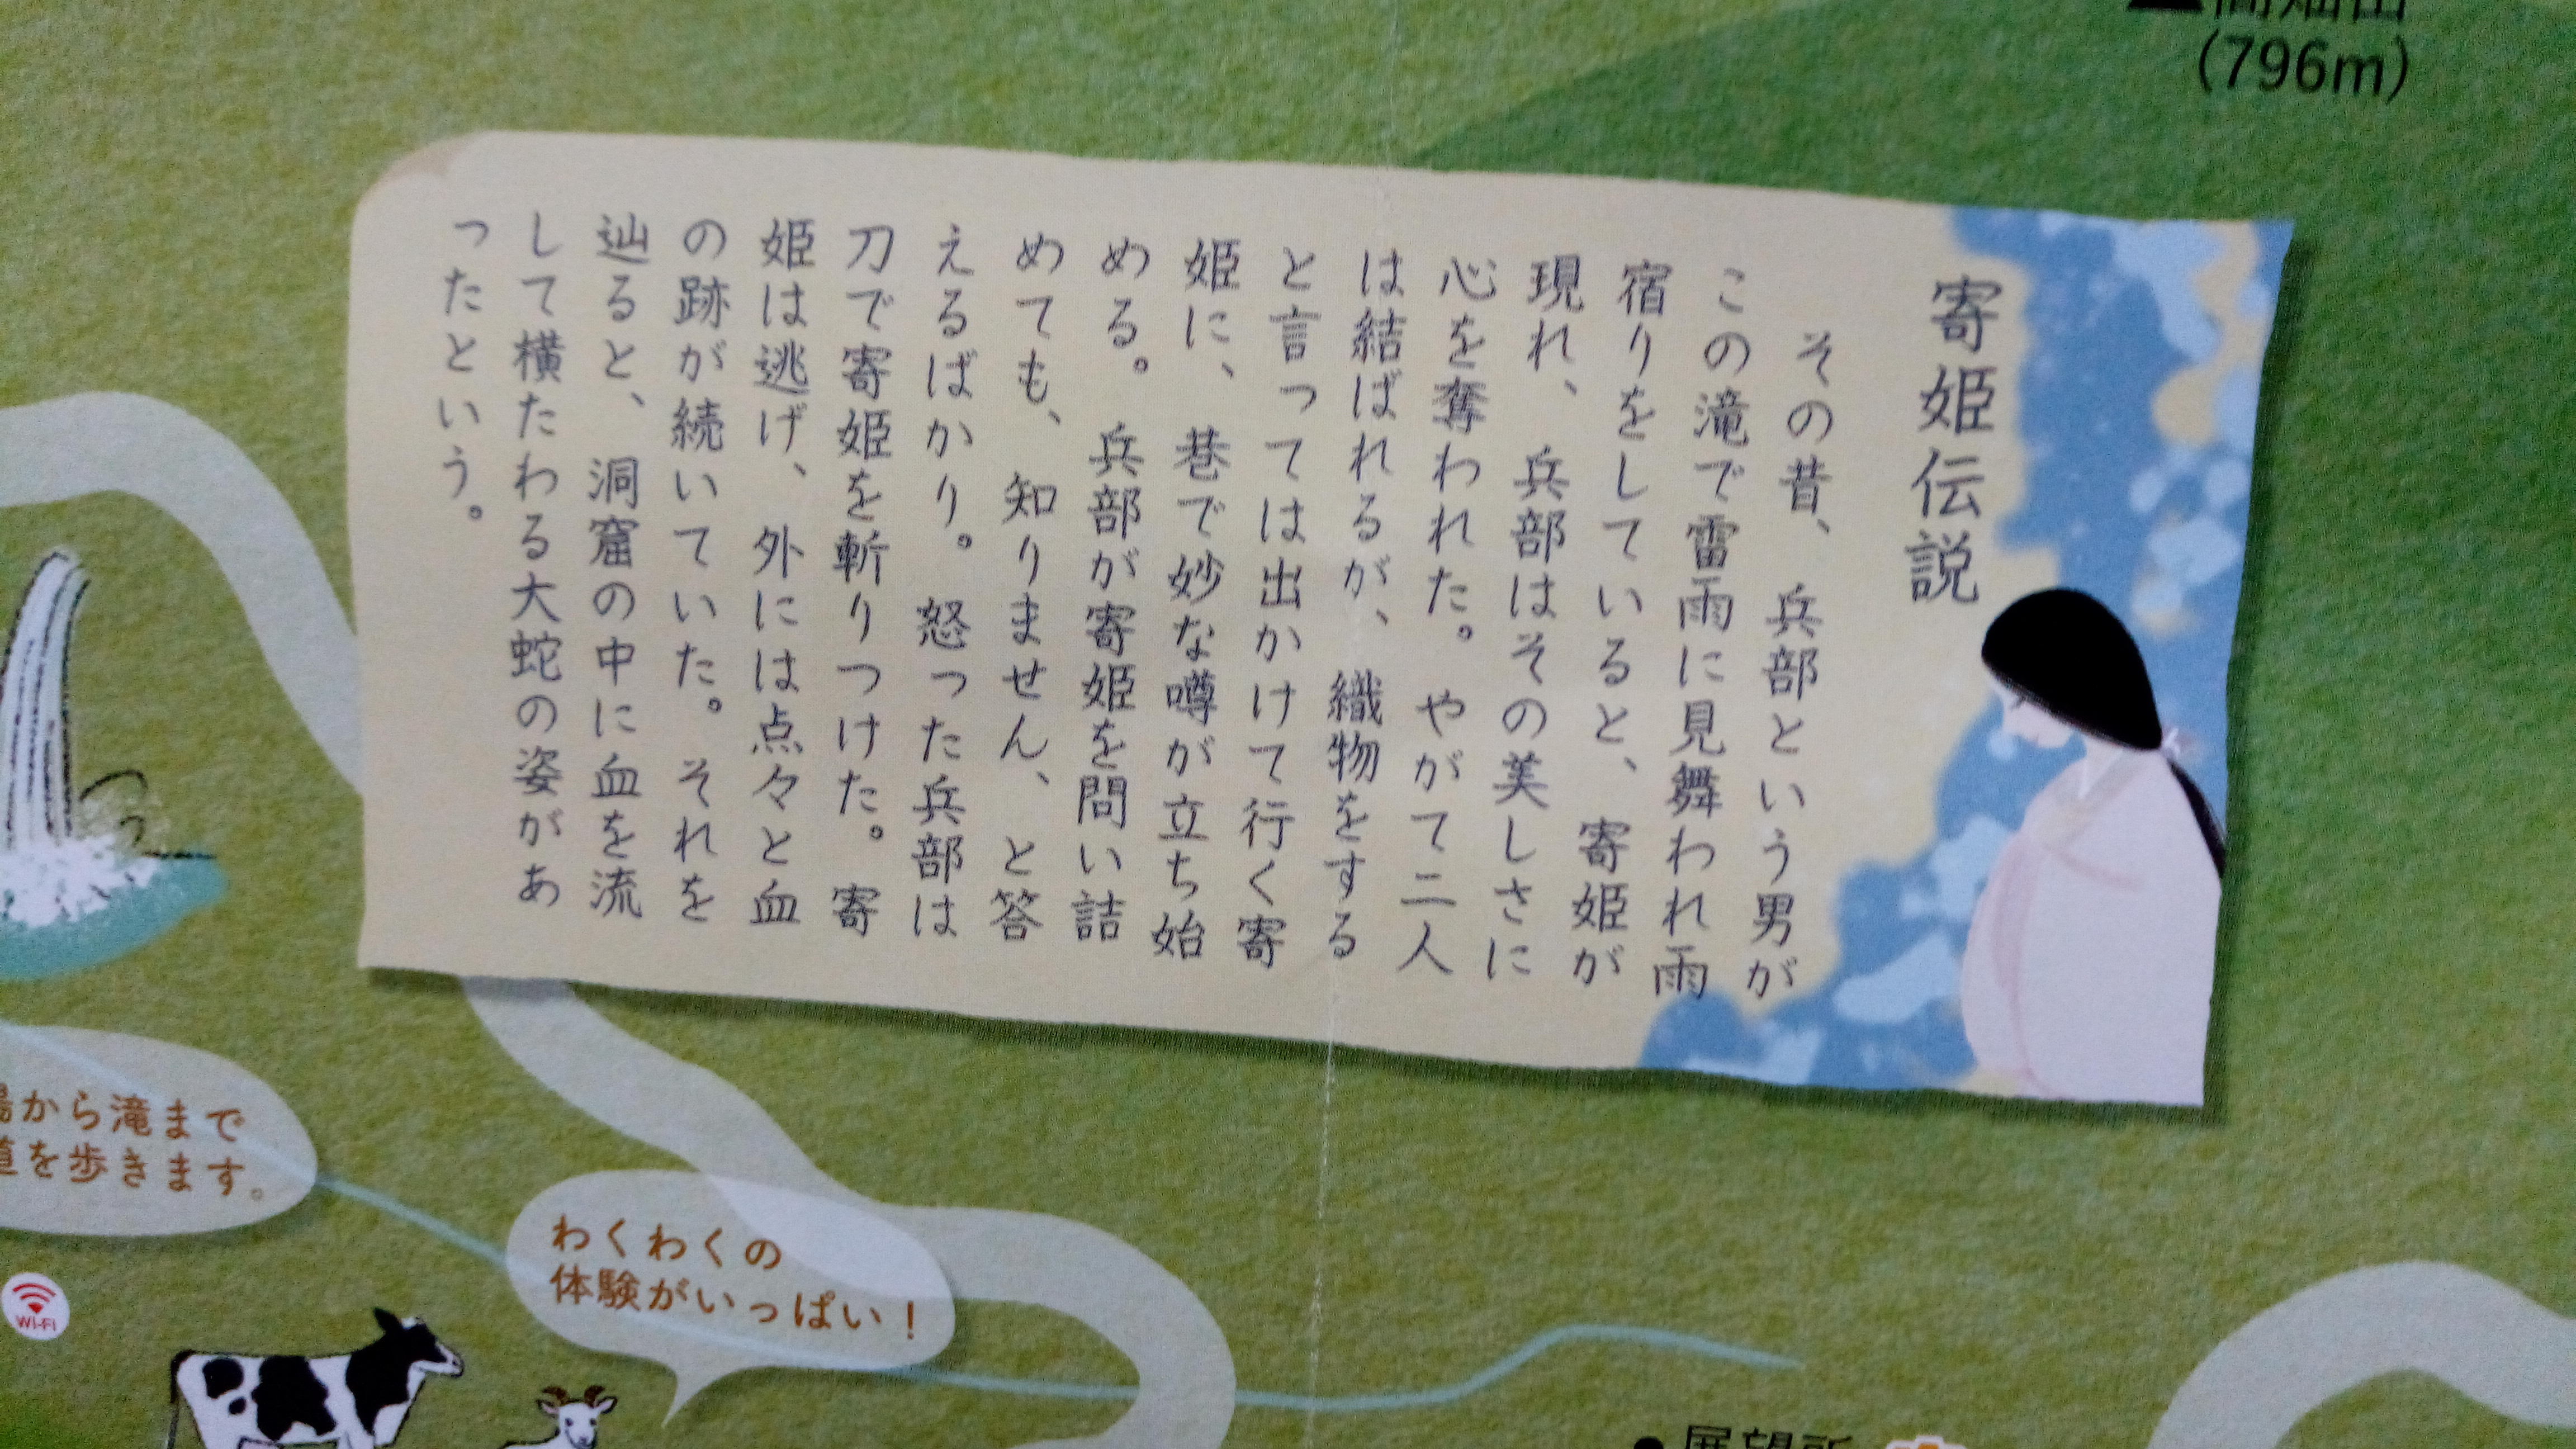 (796m)
寄姫伝説
その昔、兵部という男が
この滝で雷雨に見舞われ雨
宿りをしていると、寄姫が
現れ、兵部はその美しさに
心を奪われた。やがて二人
は結ばれるが、織物をする
と言っては出かけて行く寄
姫に、巷で妙な噂が立ち始
める。兵部が寄姫を問い詰
めても、知りません、と答
えるばかり。怒った兵部は
刀で寄姫を斬りつけた。寄
姫は逃げ、外には点々と血
の跡が続いていた。それを
辿ると、洞窟の中に血を流
して横たわる大蛇の姿があ
ったという。
から滝まで
を歩きます。
わくわくの
体験がいっぱい！
Wi-Fi
展望所